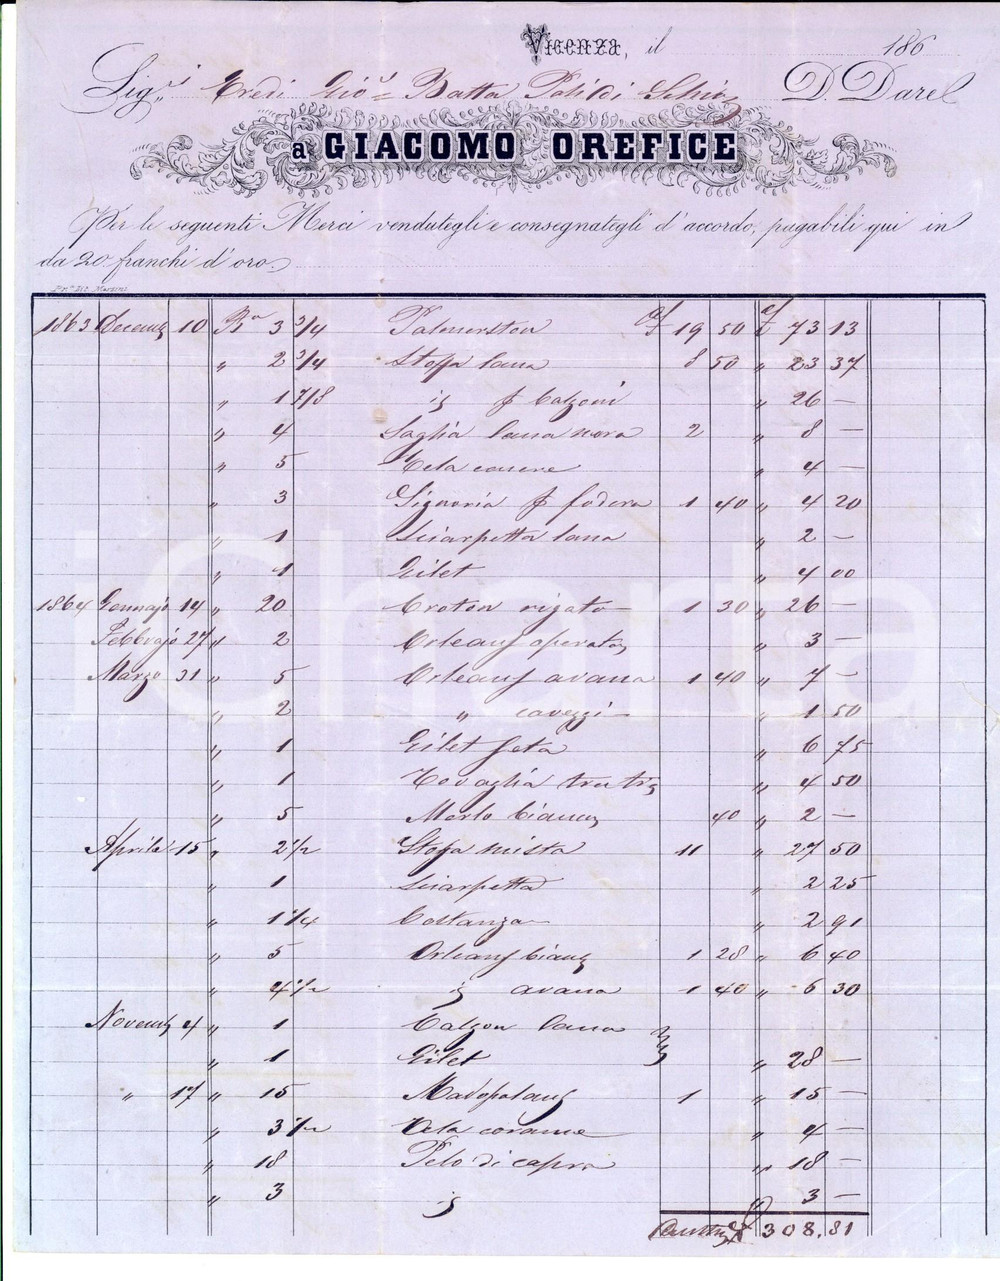 Vicenza, il 186
Sig.ri Eredi Gio. Batta D. Dare
a GIACOMO OREFICE
Per le seguenti Merci vendutegli e consegnategli d'accordo, pagabili qui in
da 20 franchi d'oro
1863 Decemb 10 Bra 3 3/4 Palmerston 19 50 73 13
" 2 3/4 Stoffa lana 8 50 " 23 37
" 1 7/8 id p Calzoni " 26 —
" 4 Saglia lana nera 2 " 8 —
" 5 Tela comune " 4 —
" 3 Signoria p fodera 1 40 " 4 20
" 1 Sciarpetta lana " 2 —
" 1 Gilet " 4 00
1864 Gennajo 14 " 20 Croton rigato 1 30 " 26 —
Febbrajo 27 " 2 Orleans operato " 3 —
Marzo 31 " 5 Orleans avana 1 40 " 7 —
" 2 " cavezzi " 1 50
" 1 Gilet seta " 6 75
" 1 Tovaglia " 4 50
" 5 Merlo bianco 40 " 2 —
Aprile 15 " 2 1/2 Stoffa mista 11 " 27 50
" 1 Sciarpetta " 2 25
" 1 1/4 Costanza " 2 91
" 5 Orleans bianco 1 28 " 6 40
" 4 1/2 id avana 1 40 " 6 30
Novemb 4 " 1 Calzon lana
" 1 Gilet " 28 —
" 17 " 15 Madopolans 1 " 15 —
" 3 1/2 Tela comune " 4 —
" 18 Pelo di capra " 18 —
" 3 id " 3 —
308.81
iCharta